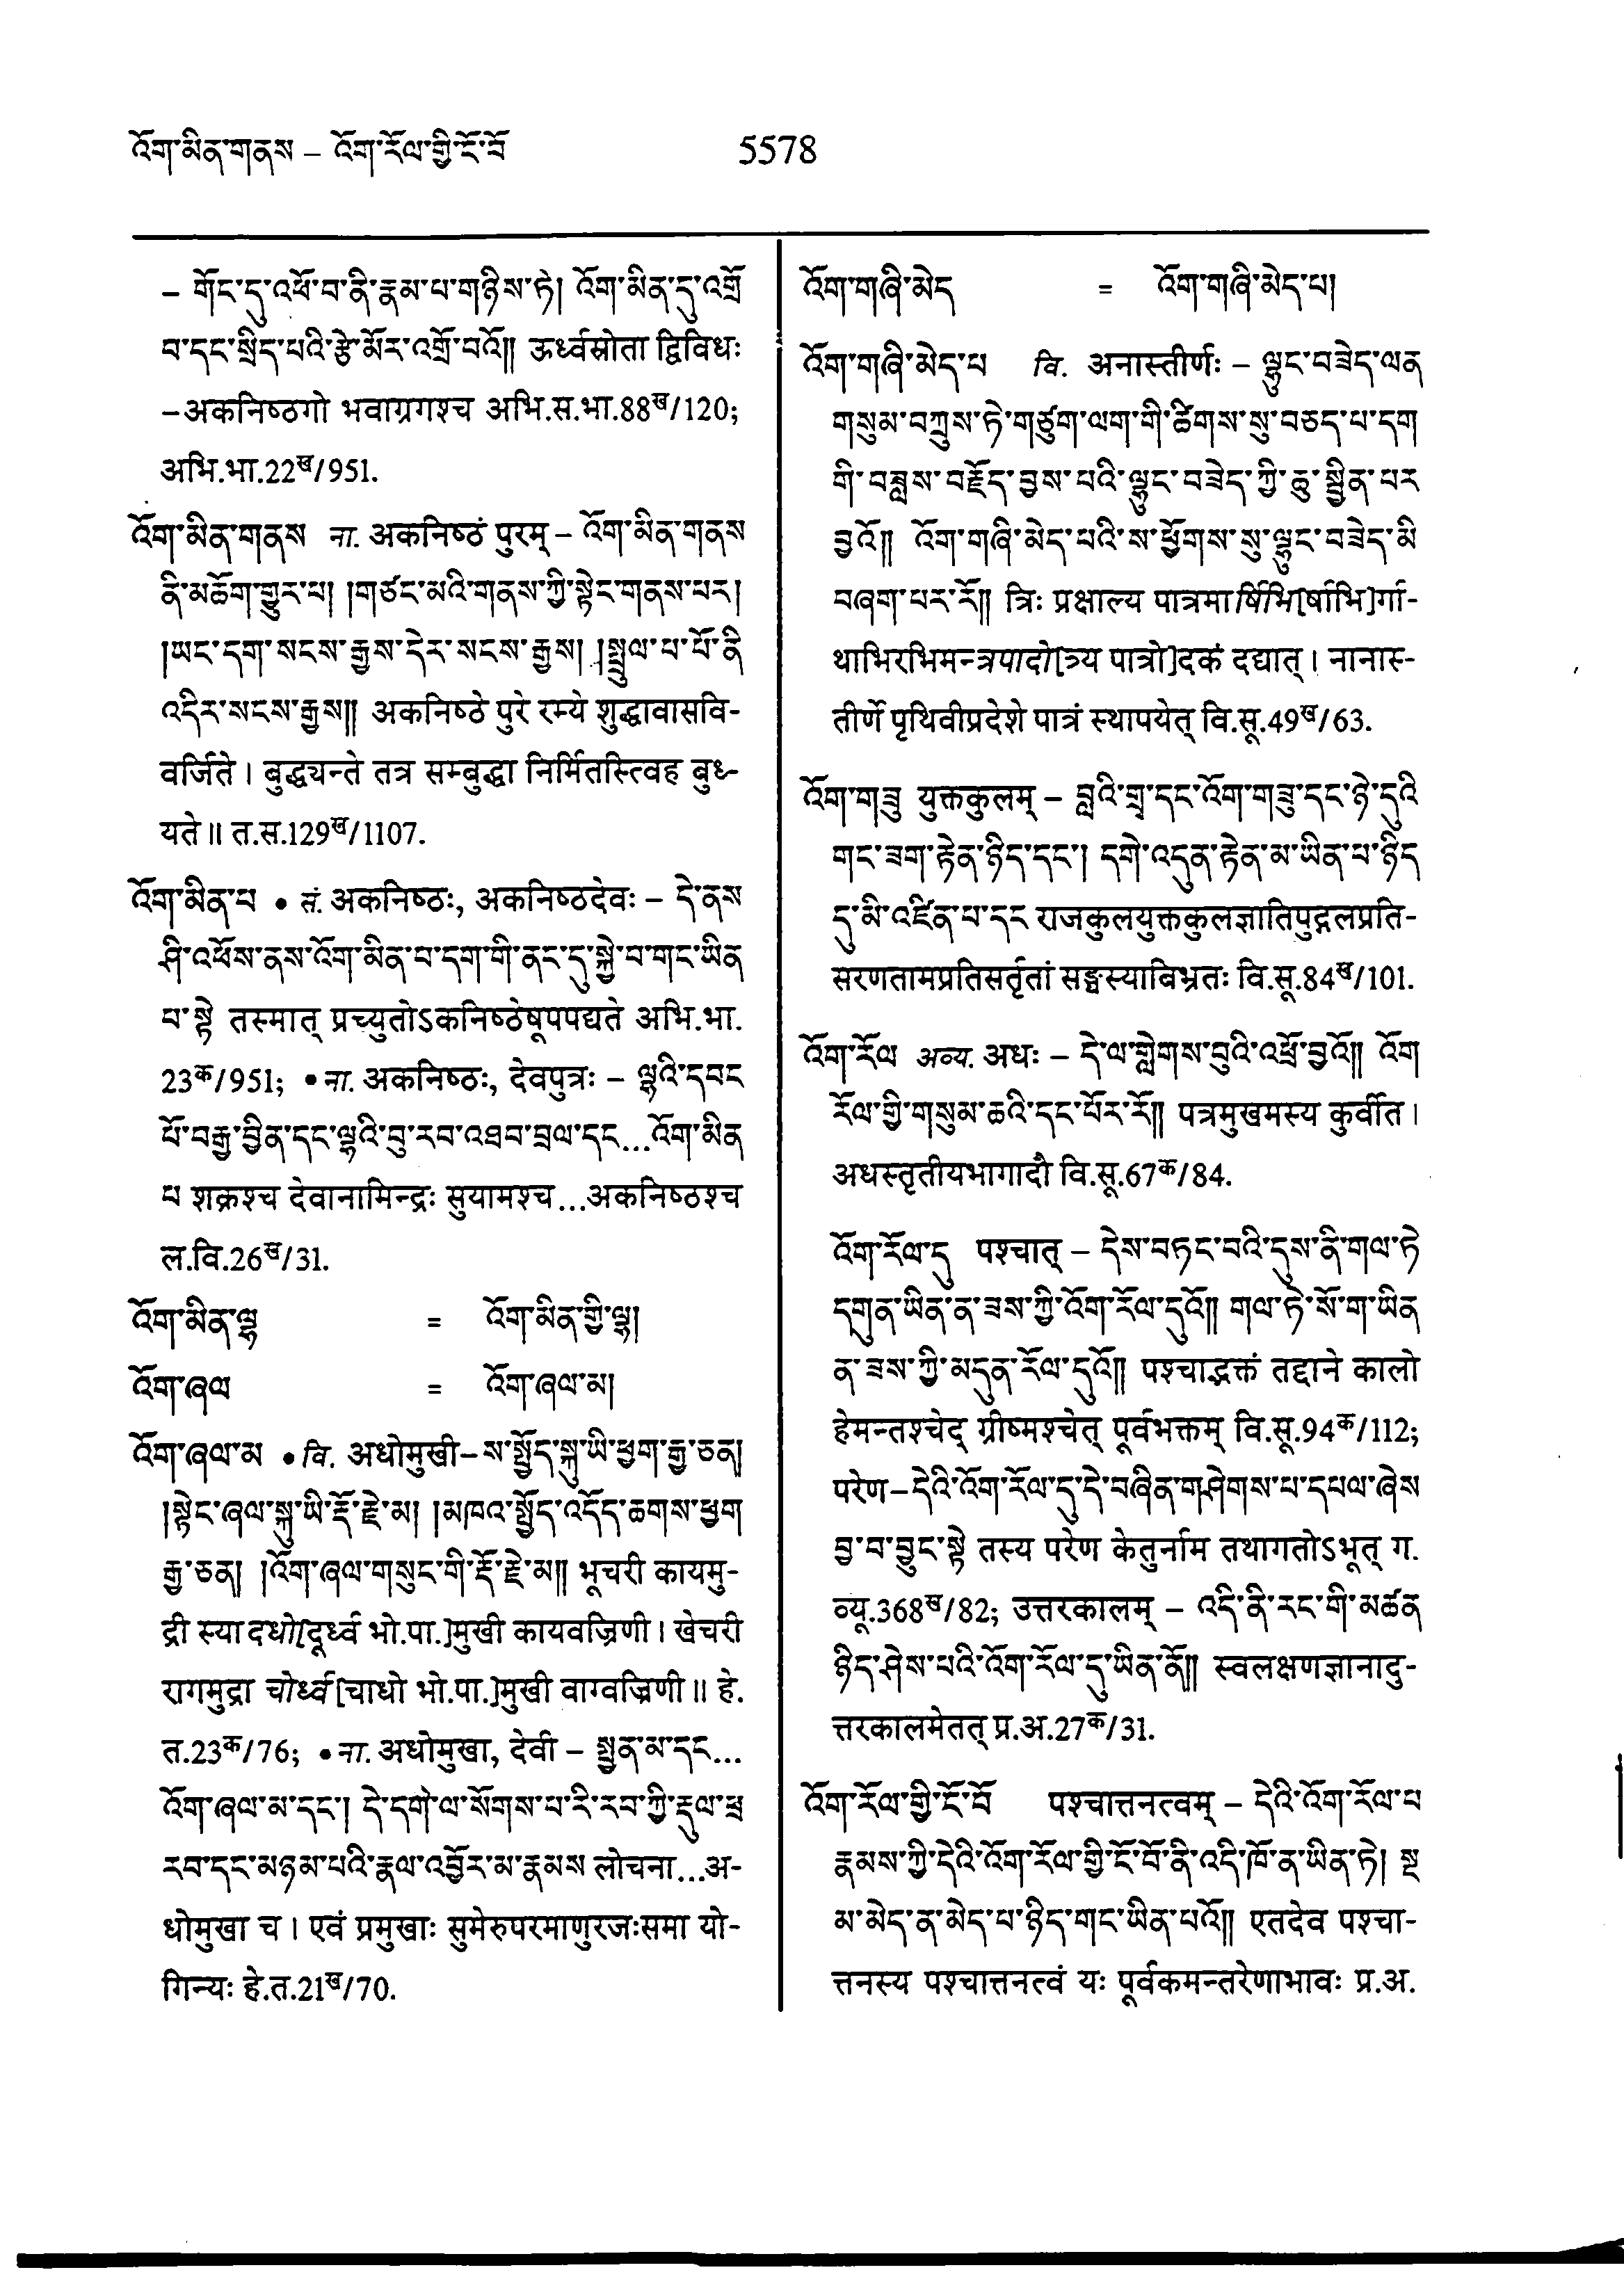 འོག་མིན་གནས – འོག་རོལ་གྱི་ངོ་བོ
5578
– གོང་དུ་འཕོ་བ་ནི་རྣམ་པ་གཉིས་ཏེ། འོག་མིན་དུ་འགྲོ
བ་དང་སྲིད་པའི་རྩེ་མོར་འགྲོ་བའོ།། ऊर्ध्वस्रोता द्विविधः
–अकनिष्ठगो भवाग्रगश्च अभि.स.भा.88ख/120;
अभि.भा.22ख/951.
འོག་མིན་གནས ना. अकनिष्ठं पुरम् – འོག་མིན་གནས
ནི་མཆོག་གྱུར་པ། །གཙང་མའི་གནས་ཀྱི་སྟེང་གནས་པར།
།ཡང་དག་སངས་རྒྱས་དེར་སངས་རྒྱས། །སྤྲུལ་པ་པོ་ནི
འདིར་སངས་རྒྱས།། अकनिष्ठे पुरे रम्ये शुद्धावासवि-
वर्जिते । बुद्ध्यन्ते तत्र सम्बुद्धा निर्मितस्त्विह बुध्-
यते ॥ त.स.129ख/1107.
འོག་མིན་པ • सं. अकनिष्ठः, अकनिष्ठदेवः – དེ་ནས
ཤི་འཕོས་ནས་འོག་མིན་པ་དག་གི་ནང་དུ་སྐྱེ་བ་གང་ཡིན
པ་སྟེ तस्मात् प्रच्युतोऽकनिष्ठेषूपपद्यते अभि.भा.
23क/951; • ना. अकनिष्ठः, देवपुत्रः – ལྷའི་དབང
པོ་བརྒྱ་བྱིན་དང་ལྷའི་བུ་རབ་འཐབ་བྲལ་དང...འོག་མིན
པ शक्रश्च देवानामिन्द्रः सुयामश्च...अकनिष्ठश्च
ल.वि.26ख/31.
འོག་མིན་ལྷ = འོག་མིན་གྱི་ལྷ།
འོག་ཞལ = འོག་ཞལ་མ།
འོག་ཞལ་མ • वि. अधोमुखी– ས་སྤྱོད་སྐུ་ཡི་ཕྱག་རྒྱ་ཅན།
།སྟེང་ཞལ་སྐུ་ཡི་རྡོ་རྗེ་མ། །མཁའ་སྤྱོད་འདོད་ཆགས་ཕྱག
རྒྱ་ཅན། །འོག་ཞལ་གསུང་གི་རྡོ་རྗེ་མ།། भूचरी कायमु-
द्री स्यादधो[दूर्ध्व भो.पा.]मुखी कायवज्रिणी । खेचरी
रागमुद्रा चोर्ध्व[चाधो भो.पा.]मुखी वाग्वज्रिणी ॥ हे.
त.23क/76; • ना. अधोमुखा, देवी – སྤྱན་མ་དང...
འོག་ཞལ་མ་དང་། དེ་དག་ལ་སོགས་པ་རི་རབ་ཀྱི་རྡུལ་ཕྲ
རབ་དང་མཉམ་པའི་རྣལ་འབྱོར་མ་རྣམས लोचना...अ-
धोमुखा च । एवं प्रमुखाः सुमेरुपरमाणुरजःसमा यो-
गिन्यः हे.त.21ख/70.
འོག་གཞི་མེད = འོག་གཞི་མེད་པ།
འོག་གཞི་མེད་པ वि. अनास्तीर्णः – ལྷུང་བཟེད་ལན
གསུམ་བཀྲུས་ཏེ་གཙུག་ལག་གི་ཚིགས་སུ་བཅད་པ་དག
གི་བཟླས་བརྗོད་བྱས་པའི་ལྷུང་བཟེད་ཀྱི་ཆུ་སྦྱིན་པར
བྱའོ།། འོག་གཞི་མེད་པའི་ས་ཕྱོགས་སུ་ལྷུང་བཟེད་མི
བཞག་པར་རོ།། त्रिः प्रक्षाल्य पात्रमार्षिभि[र्षाभि]र्गा-
थाभिरभिमन्त्रपादो[त्र्य पात्रो]दकं दद्यात् । नानास्-
तीर्णे पृथिवीप्रदेशे पात्रं स्थापयेत् वि.सू.49ख/63.
འོག་གཟུ युक्तकुलम् – བླའི་གྲྭ་དང་འོག་གཟུ་དང་ཉེ་དུའི
གང་ཟག་རྟེན་ཉིད་དང་། དགེ་འདུན་རྟེན་མ་ཡིན་པ་ཉིད
དུ་མི་འཛིན་པ་དང राजकुलयुक्तकुलज्ञातिपुद्गलप्रति-
सरणतामप्रतिसर्तृतां सङ्घस्याबिभ्रतः वि.सू.84ख/101.
འོག་རོལ अव्य. अधः – དེ་ལ་གླེགས་བུའི་འཕྲོ་བྱའོ།། འོག
རོལ་གྱི་གསུམ་ཆའི་དང་པོར་རོ།། पत्रमुखमस्य कुर्वीत ।
अधस्तृतीयभागादौ वि.सू.67क/84.
འོག་རོལ་དུ पश्चात् – དེས་བཏང་བའི་དུས་ནི་གལ་ཏེ
དགུན་ཡིན་ན་ཟས་ཀྱི་འོག་རོལ་དུའོ།། གལ་ཏེ་སོ་ག་ཡིན
ན་ཟས་ཀྱི་མདུན་རོལ་དུའོ།། पश्चाद्भक्तं तद्दाने कालो
हेमन्तश्चेद् ग्रीष्मश्चेत् पूर्वभक्तम् वि.सू.94क/112;
परेण – དེའི་འོག་རོལ་དུ་དེ་བཞིན་གཤེགས་པ་དཔལ་ཞེས
བྱ་བ་བྱུང་སྟེ तस्य परेण केतुर्नाम तथागतोऽभूत् ग.
व्यू.368ख/82; उत्तरकालम् – འདི་ནི་རང་གི་མཚན
ཉིད་ཤེས་པའི་འོག་རོལ་དུ་ཡིན་ནོ།། स्वलक्षणज्ञानादु-
त्तरकालमेतत् प्र.अ.27क/31.
འོག་རོལ་གྱི་ངོ་བོ पश्चात्तनत्वम् – དེའི་འོག་རོལ་པ
རྣམས་ཀྱི་དེའི་འོག་རོལ་གྱི་ངོ་བོ་ནི་འདི་ཁོ་ན་ཡིན་ཏེ། སྔ
མ་མེད་ན་མེད་པ་ཉིད་གང་ཡིན་པའོ།། एतदेव पश्चा-
त्तनस्य पश्चात्तनत्वं यः पूर्वकमन्तरेणाभावः प्र.अ.